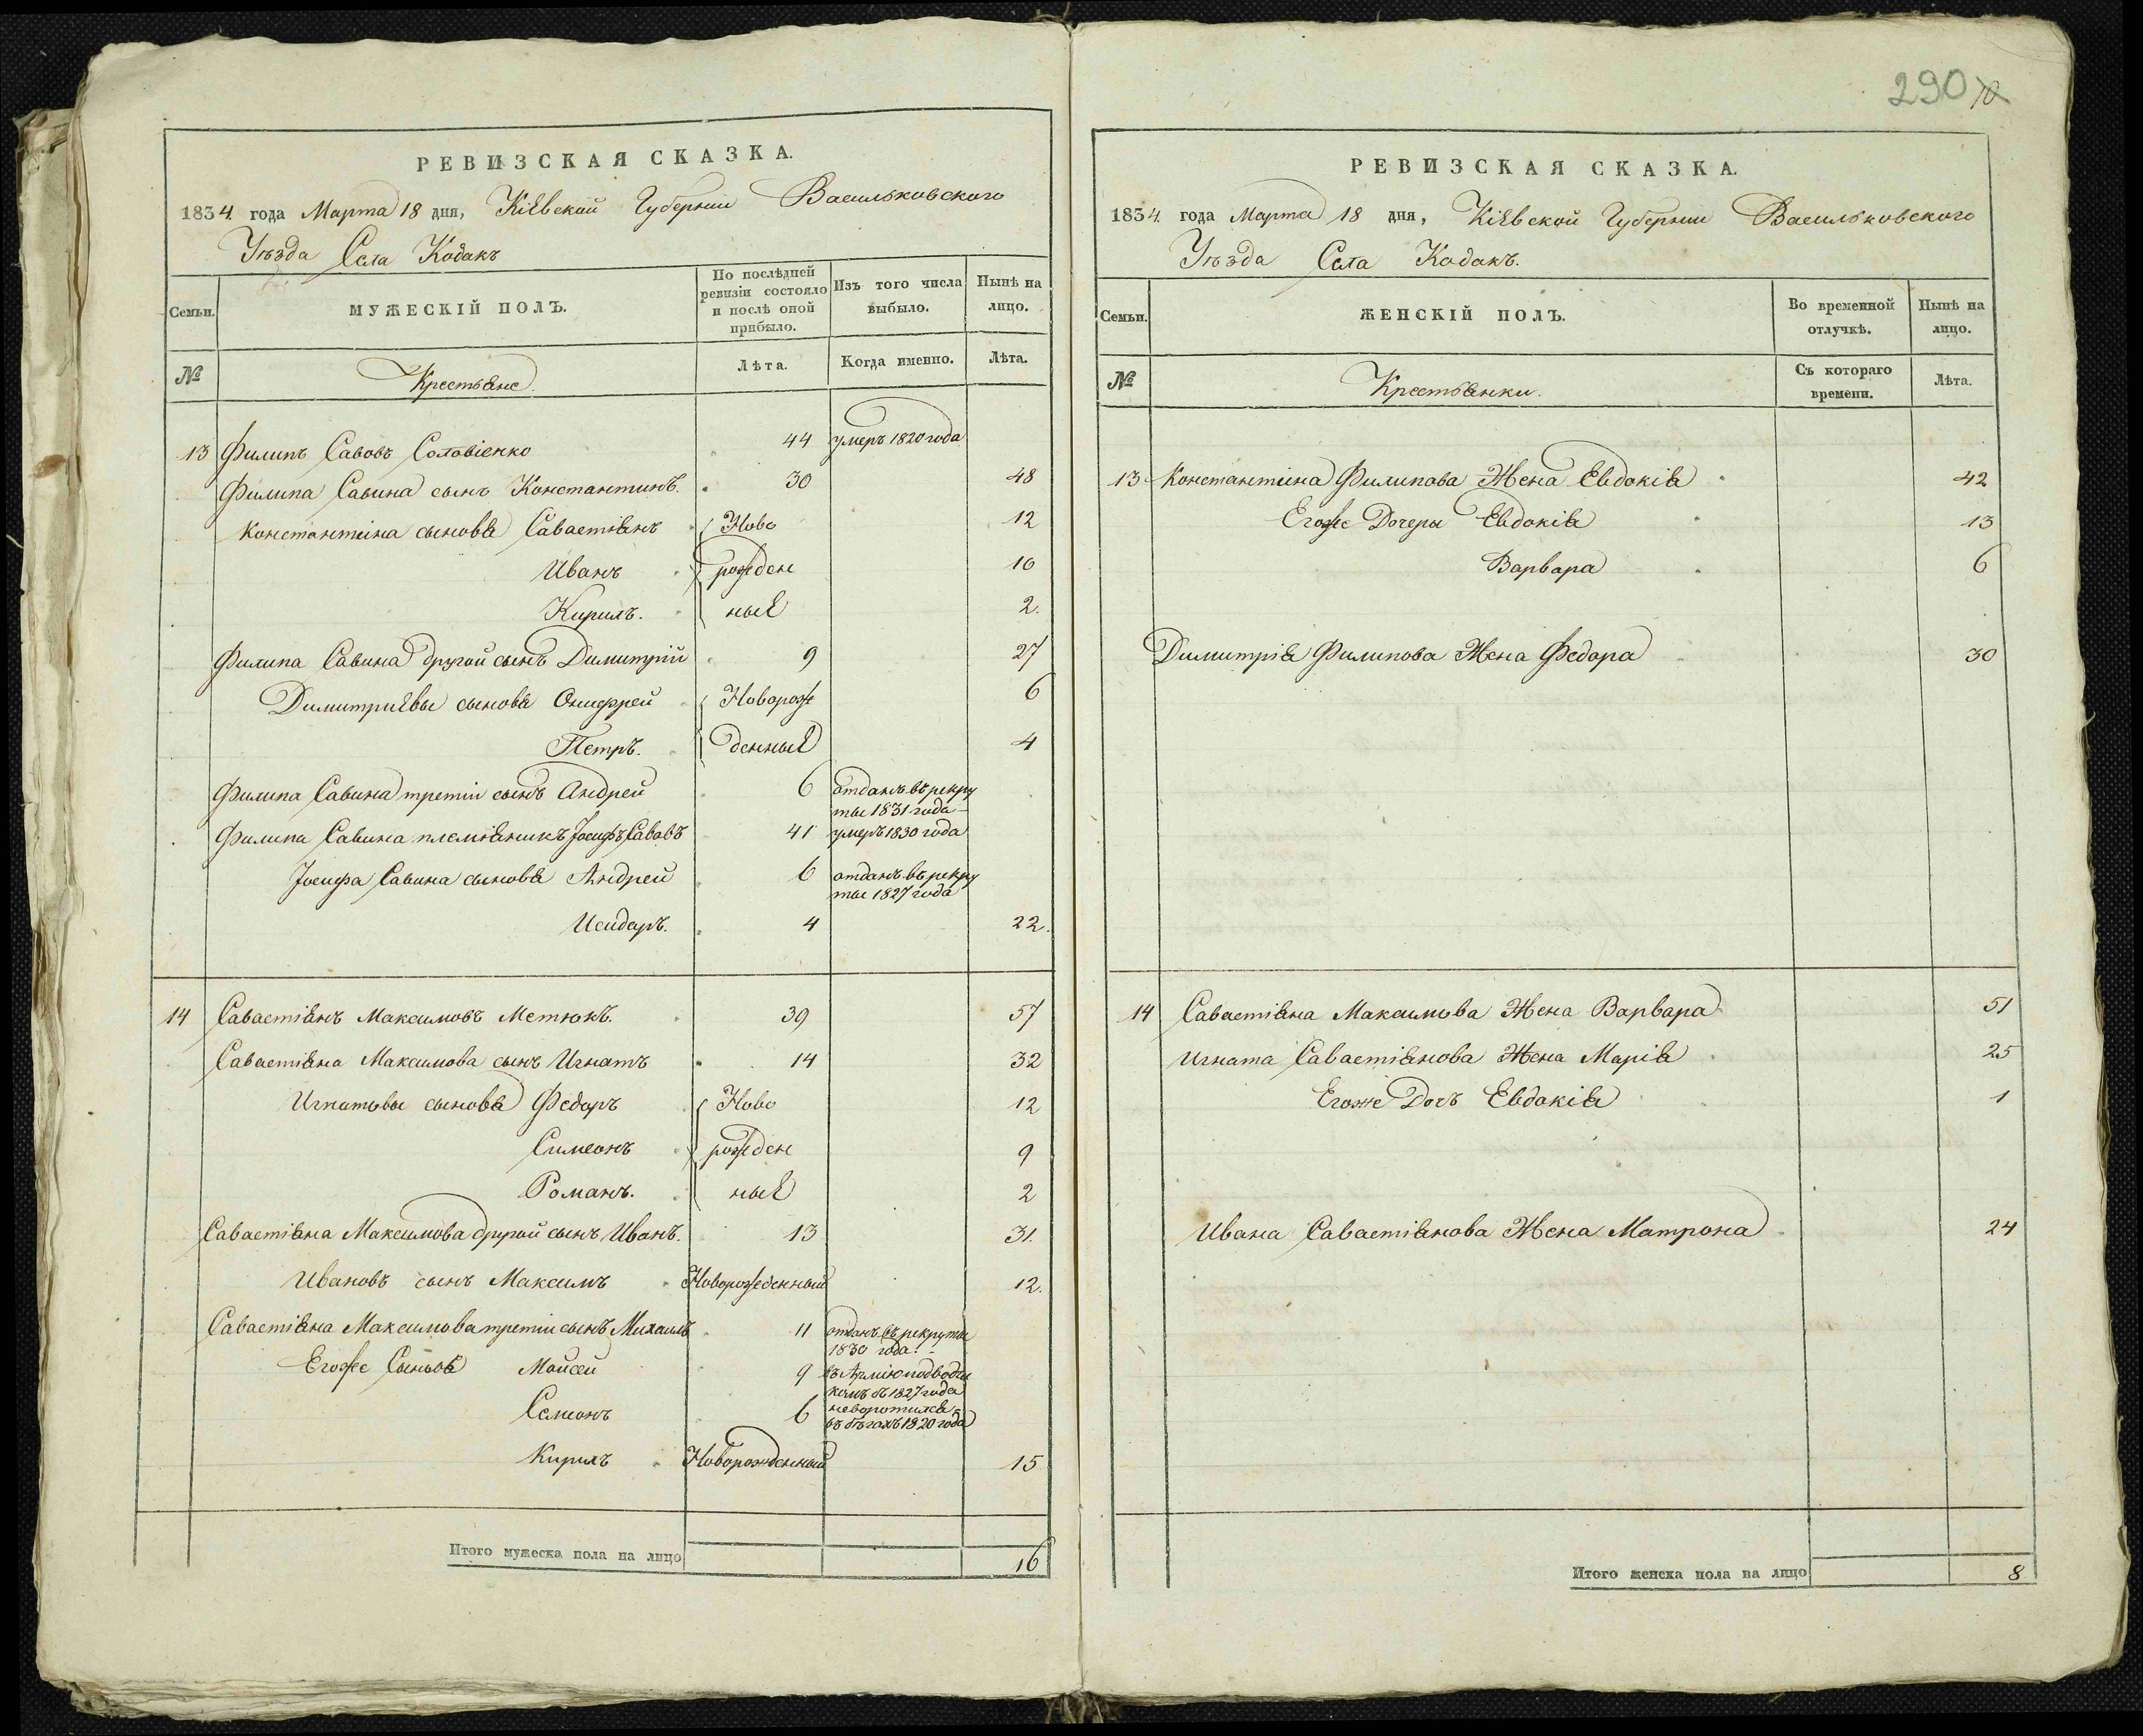 290
РЕВИЗСКАЯ СКАЗКА.
1834 года Марта 18 дня, Кіевской Губерніи Васильковского
Уѣзда Села Кодакъ
Семьи.
МУЖЕСКІЙ ПОЛЪ.
По послѣдней ревизіи состояло и послѣ оной прибыло.
Изъ того числа выбыло.
Нынѣ на лицо.
№
Крестьяне.
Лѣта.
Когда именно.
Лѣта.
13 Филипъ Савовъ Соловіенко 44 умеръ 1820 года
Филипа Савина сынъ Константинъ. 30 48
Константина сыновья Савастіянъ Ново 12
Иванъ рожден 10
Кирилъ. ные 2.
Филипа Савина другой сынъ Димитрій 9 27
Димитриевы сыновья Онифрей Новорож 6
Петръ. денные 4
Филипа Савина третіи сынъ Андрей 6 отданъ въ рекру
ты 1831 года
Филипа Савина племяникъ Іосифъ Савовъ 41 умеръ 1830 года
Іосифа Савина сыновья Андрей 6 отданъ въ рекру
ты 1827 года
Исидоръ. 4 22.
14 Савастіянъ Максимовъ Метюкъ. 39 57
Савастіяна Максимова сынъ Игнатъ 14 32
Игнатовы сыновья Федоръ Ново 12
Симеонъ рожден 9
Романъ. ные 2
Савастіяна Максимова другой сынъ Иванъ. 13 31.
Ивановъ сынъ Максимъ Новорожденный 12.
Савастіяна Максимова третіи сынъ Михаилъ 11 отданъ въ рекруты
1830 года.
Егоже Сыновья Мойсей 9 въ Армію подводчи
комъ съ 1827 года
Семионъ 6 неворотился
въ бѣгахъ 1820 года
Кирилъ Новорожденный 15
Итого мужеска пола на лицо 16
РЕВИЗСКАЯ СКАЗКА.
1834 года Марта 18 дня, Кіевской Губерніи Васильковского
Уѣзда Села Кодакъ.
Семьи.
ЖЕНСКІЙ ПОЛЪ.
Во временной отлучкѣ.
Нынѣ на лицо.
№
Крестьянки.
Съ котораго времени.
Лѣта.
13 Константина Филипова Жена Евдокія 42
Егоже Дочеры Евдокія 13
Варвара 6
Димитрія Филипова Жена Федора 30
14 Савастіяна Максимова Жена Варвара 51
Игната Савастіянова Жена Марія 25
Егоже Дочь Евдокія 1
Ивана Савастіянова Жена Матрона 24
Итого женска пола на лицо 8